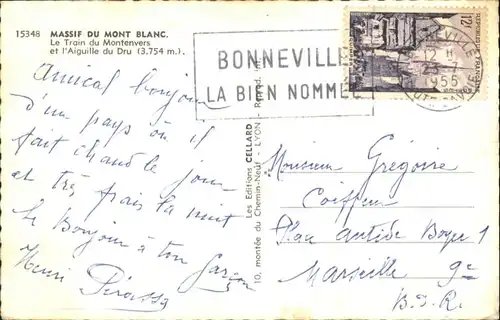 15348 MASSIF DU MONT BLANC.
Le Train du Montenvers
et l'Aiguille du Dru (3.754 m.).
Amical bonjour
d'un pays où il
fait chaud le jour
et très frais la nuit
le Bonjour à ton garçon
Henri
Les Editions CELLARD
10, montée du Chemin-Neuf - LYON - Reprod. int.
BONNEVILLE
LA BIEN NOMMÉE
12F
REPUBLIQUE FRANÇAISE
BONNEVILLE
12 H
1955
Monsieur Grégoire
Coiffeur
Place Antide Boyer 1
Marseille 9e
B.D.R.